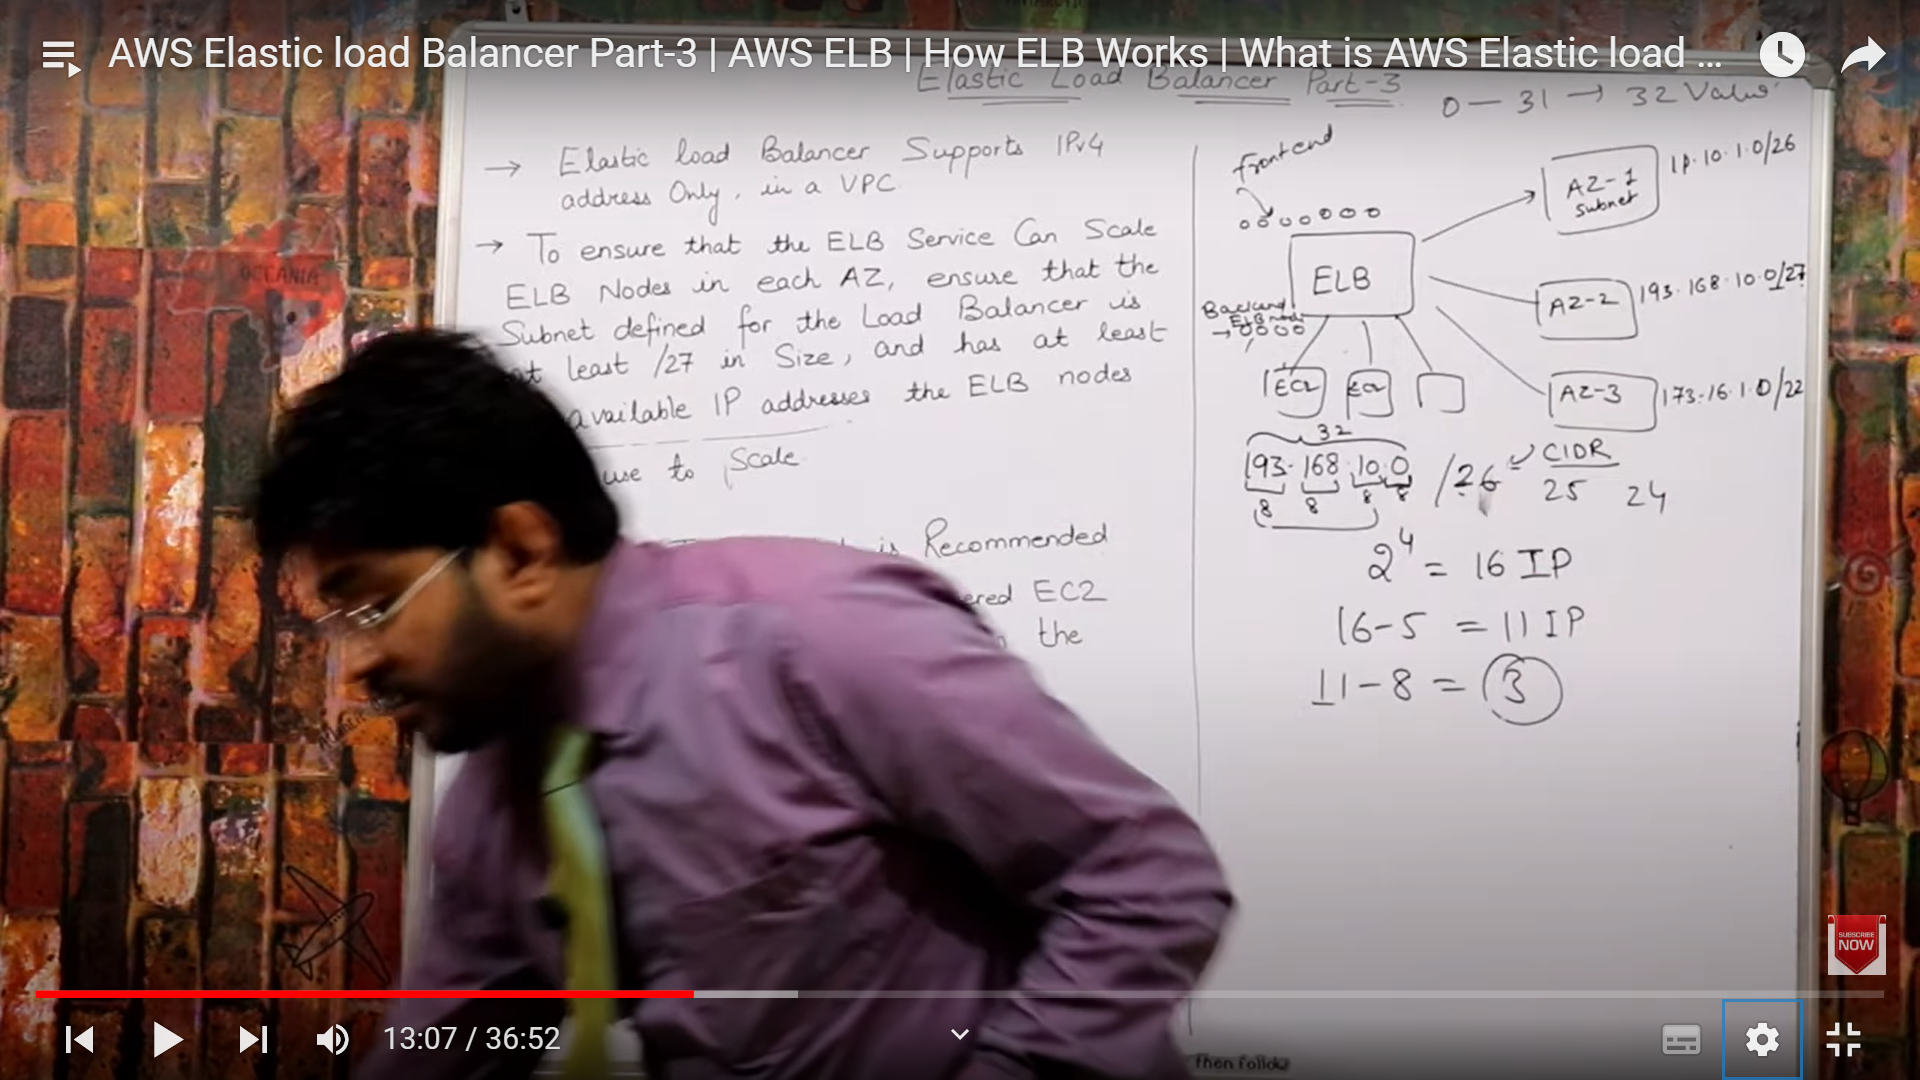 AWS Elastic load Balancer Part-3 | AWS ELB | How ELB Works | What is AWS Elastic load ...
Elastic Load Balancer Part-3
0 — 31 → 32 Value
→ Elastic load Balancer Supports IPv4
address Only, in a VPC
→ To ensure that the ELB Service Can Scale
ELB Nodes in each AZ, ensure that the
Subnet defined for the Load Balancer is
at least /27 in Size, and has at least
available IP addresses the ELB nodes
use to Scale
is Recommended
ered EC2
the
frontend
ELB
Backend
ELB node
EC2
EC2
AZ-1
Subnet
10.1.0/26
AZ-2
193.168.10.0/27
AZ-3
173.16.1.0/22
32
193.168.10.0 /26 CIDR
8 8 8 8
25 24
2⁴ = 16 IP
16-5 = 11 IP
11-8 = 3
OCEANIA
SUBSCRIBE
NOW
13:07 / 36:52
Then follow